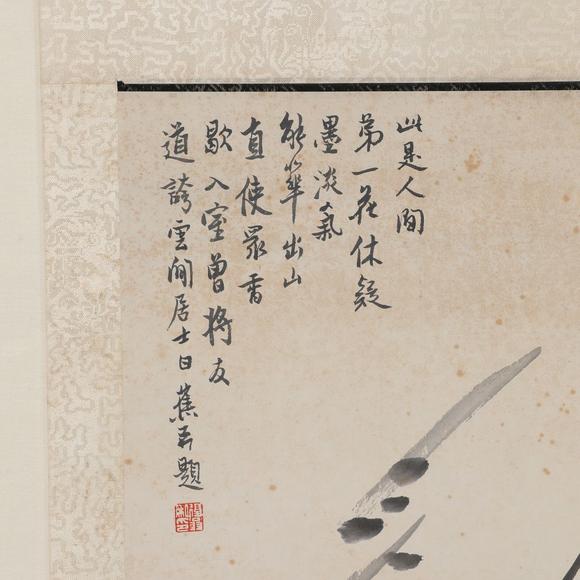 此是人間
第一花休疑
墨淡氣
能華出山
直使眾香
歇入室曾將友
道誇雲間居士白蕉并題